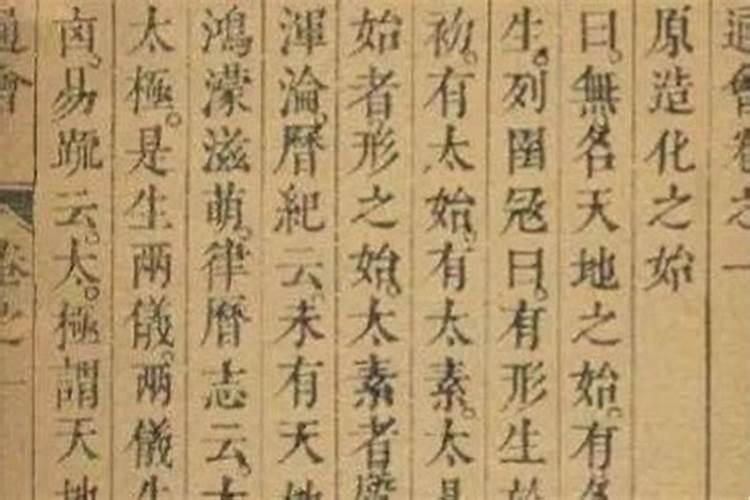 通會卷之一
原造化之始
曰。無名天地之始。有名
生。列圄寇曰。有形生於
初。有太始。有太素。太易
始者形之始。太素者
渾淪。曆紀云。未有天地
鴻濛滋萌。律曆志云。太
太極。是生兩儀。兩儀生
卤。易䟽云。太極謂天地
通會 卷之一